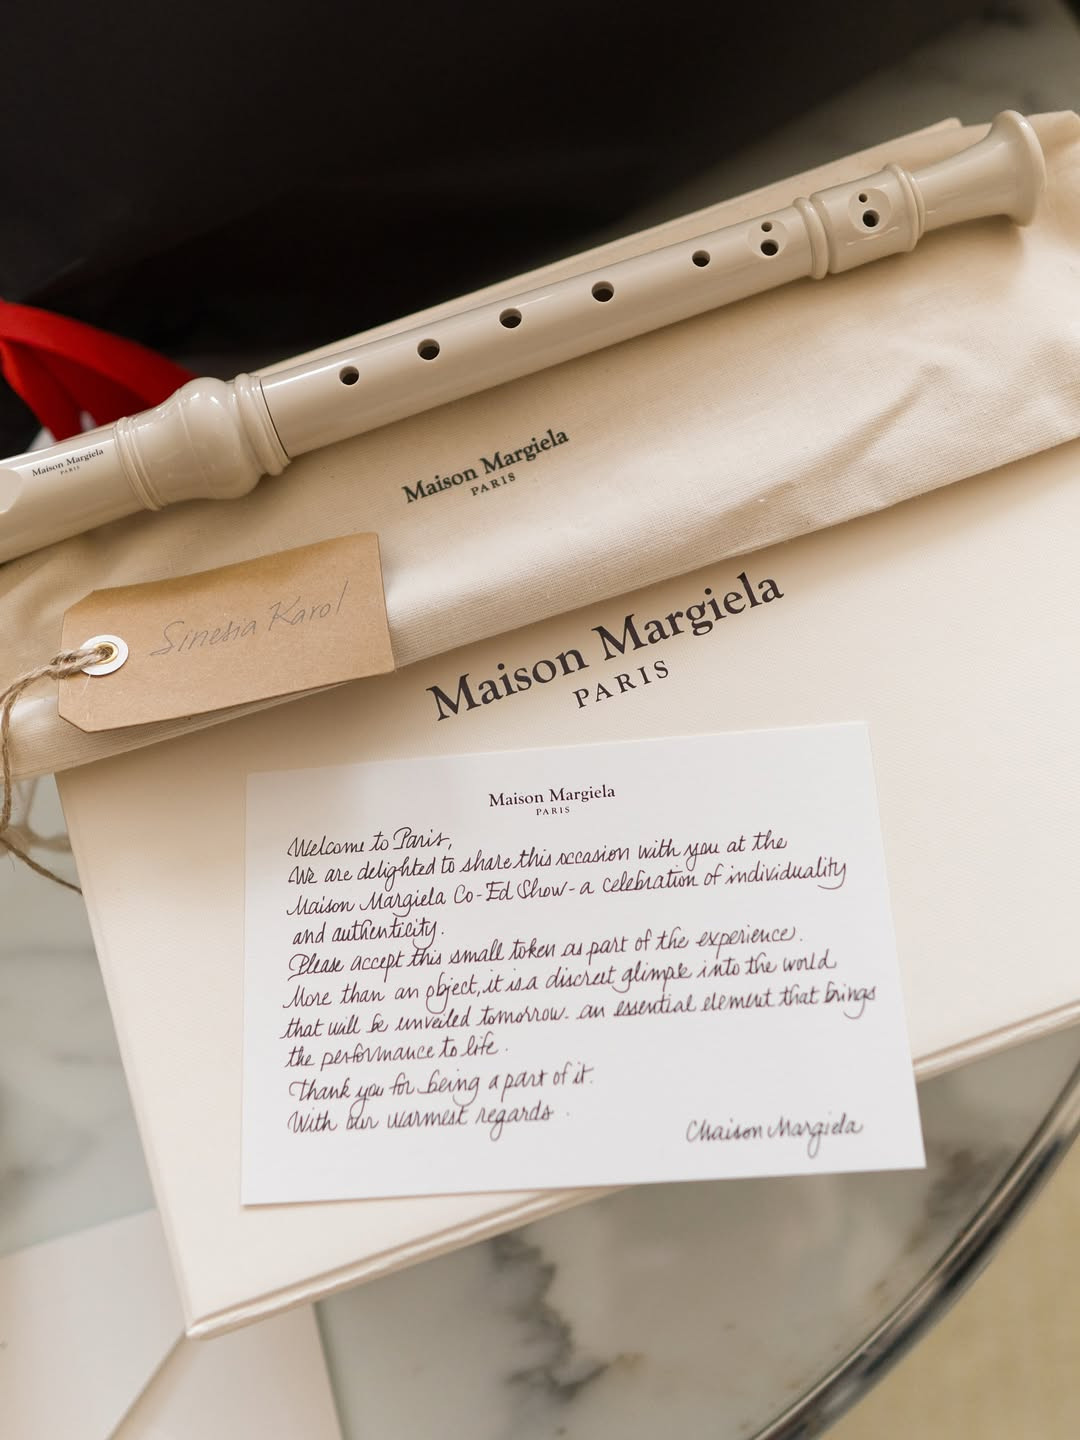 Maison Margiela
PARIS
Maison Margiela
PARIS
Sinesia Karol
Maison Margiela
PARIS
Maison Margiela
PARIS
Welcome to Paris,
We are delighted to share this occasion with you at the
Maison Margiela Co-Ed Show - a celebration of individuality
and authenticity.
Please accept this small token as part of the experience.
More than an object, it is a discreet glimpse into the world
that will be unveiled tomorrow - an essential element that brings
the performance to life.
Thank you for being a part of it.
With our warmest regards.
Maison Margiela